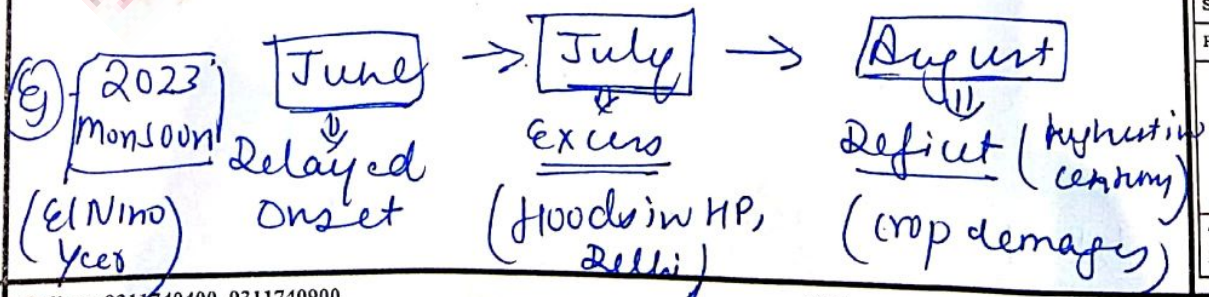 Eg 2023 monsoon (El Nino Year)
June → July → August
⇓ Delayed Onset
⇓ Excess (floods in HP, Delhi)
⇓ Deficit (highest in century) (crop damages)
9311740900